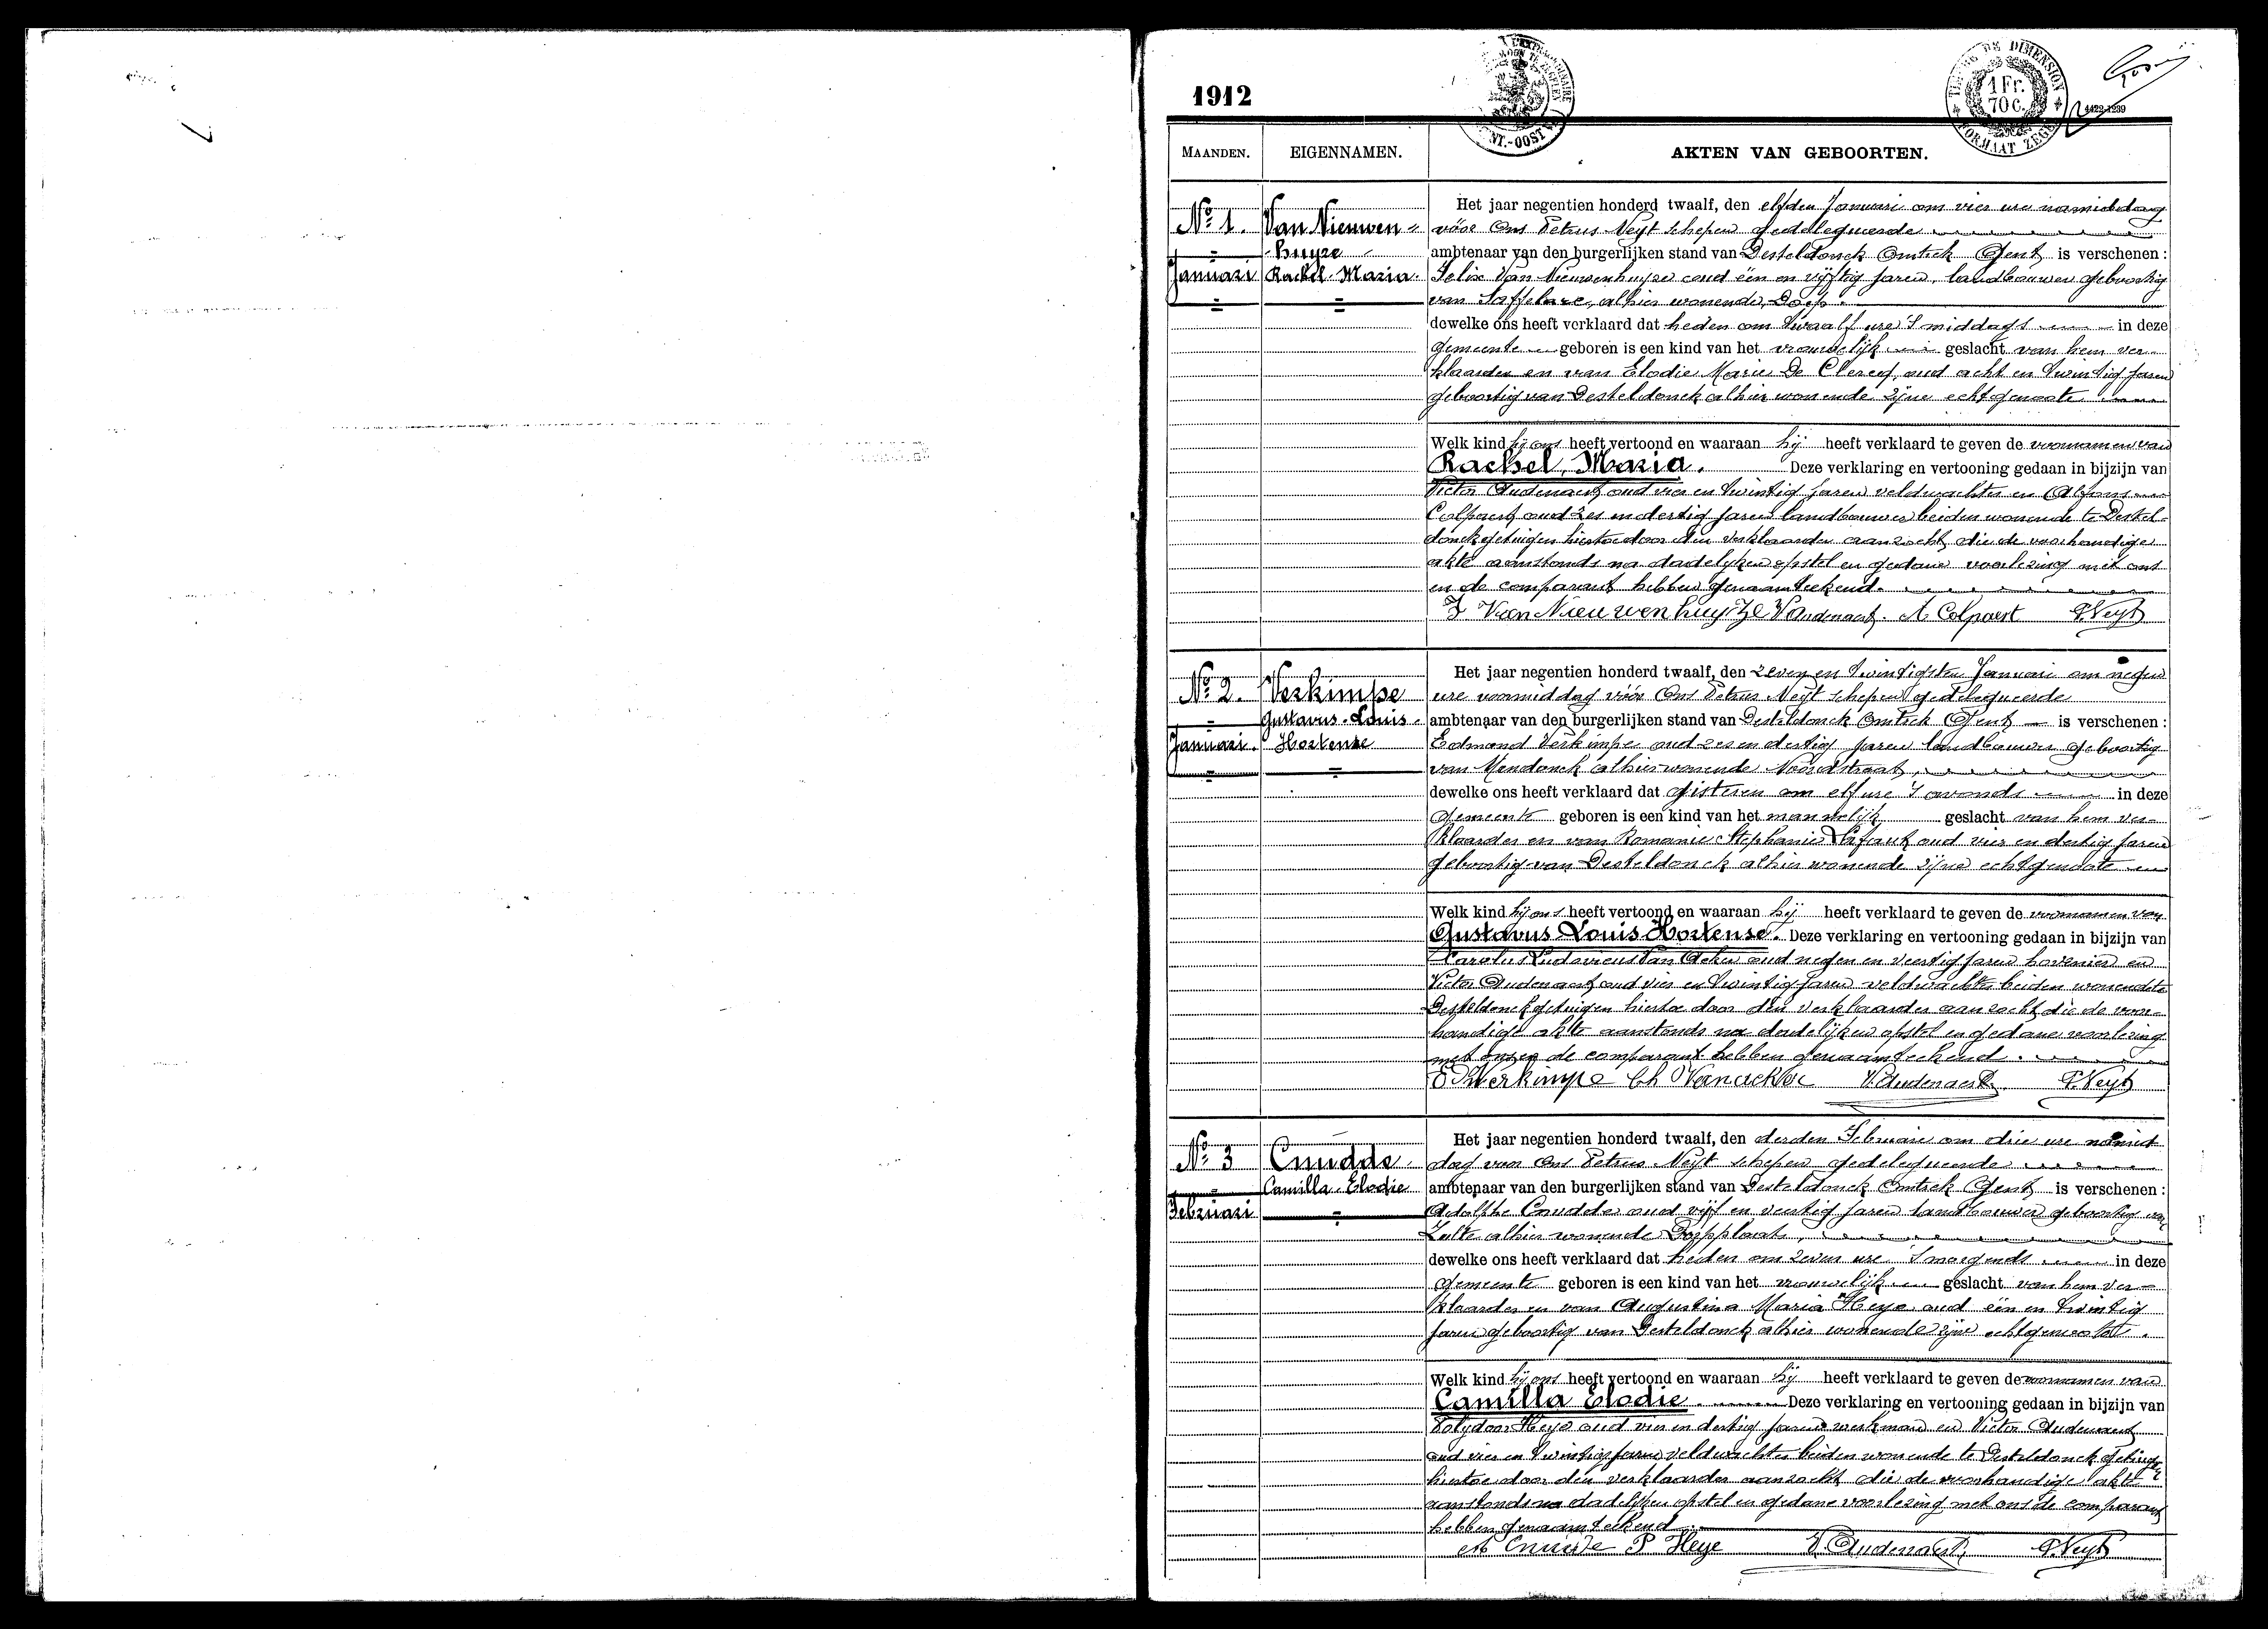 1912
TIMBRE DE DIMENSION
1 Fr. 70 C.
FORMAAT ZEGEL
MAANDEN. EIGENNAMEN. AKTEN VAN GEBOORTEN.
Nº 1. Van Nieuwen-
huyze
Januari Rachel Maria.
Het jaar negentien honderd twaalf, den elfden Januari om vier ure namiddag
vóór Ons Petrus Neyt schepen gedelegueerde
ambtenaar van den burgerlijken stand van Desteldonck Omtrek Gent is verschenen :
Felix Van Nieuwenhuyse oud één en vijftig jaren, landbouwer geboortig
van Saffelare, alhier wonende, Dorp.
dewelke ons heeft verklaard dat heden om twaalf ure 's middags in deze
gemeente geboren is een kind van het vrouwelijk geslacht van hem ver-
klaarder en van Elodie Marie De Clercq, oud acht en twintig jaren
geboortig van Desteldonck alhier wonende zijne echtgenoote
Welk kind hij ons heeft vertoond en waaraan hij heeft verklaard te geven de voornamen van
Rachel, Maria. Deze verklaring en vertooning gedaan in bijzijn van
Victor Audenaert oud vier en twintig jaren veldwachter en Alfons
Colpaert oud zes en dertig jaren landbouwer beiden wonende te Destel-
donck getuigen hiertoe door den verklaarder aanzocht, die de voorhandige
akte aanstonds na dadelijken opstel en gedane voorlezing met ons
en de comparant hebben genaamteekend.
F Van Nieuwenhuyze V Audenaert. A Colpaert P. Neyt
Nº 2. Verkimpe
Gustavus Louis
Januari. Hortense
Het jaar negentien honderd twaalf, den zeven en twintigsten Januari om negen
ure voormiddag vóór Ons Petrus Neyt schepen gedelegueerde
ambtenaar van den burgerlijken stand van Desteldonck Omtrek Gent is verschenen :
Edmond Verkimpe oud zes en dertig jaren landbouwer geboortig
van Mendonck alhier wonende Noordstraat,
dewelke ons heeft verklaard dat gisteren om elf ure 's avonds in deze
gemeente geboren is een kind van het mannelijk geslacht van hem ver-
klaarder en van Romanie Stephanie oud vier en dertig jaren
geboortig van Desteldonck alhier wonende zijne echtgenoote
Welk kind hij ons heeft vertoond en waaraan hij heeft verklaard te geven de voornamen van
Gustavus Louis Hortense. Deze verklaring en vertooning gedaan in bijzijn van
Carolus Ludovicus Van Acker oud negen en veertig jaren hovenier en
Victor Audenaert oud vier en twintig jaren veldwachter beiden wonende te
Desteldonck getuigen hiertoe door den verklaarder aanzocht die de voor-
handige akte aanstonds na dadelijken opstel en gedane voorlezing
met ons en de comparant hebben genaamteekend.
E Verkimpe Ch Vanacker V. Audenaert. P. Neyt
Nº 3 Cnudde
Camilla Elodie
Februari
Het jaar negentien honderd twaalf, den derden Februari om drie ure namid
dag voor Ons Petrus Neyt schepen gedelegueerde
ambtenaar van den burgerlijken stand van Desteldonck Omtrek Gent is verschenen :
Adolphe Cnudde oud vijf en veertig jaren landbouwer geboortig van
Zulte alhier wonende Dorpplaats,
dewelke ons heeft verklaard dat heden om zeven ure 's morgends in deze
gemeente geboren is een kind van het vrouwelijk geslacht van hem ver-
klaarder en van Augustina Maria Heye oud één en twintig
jaren geboortig van Desteldonck alhier wonende zijne echtgenoote.
Welk kind hij ons heeft vertoond en waaraan hij heeft verklaard te geven de voornamen van
Camilla Elodie. Deze verklaring en vertooning gedaan in bijzijn van
Polydoor Heye oud vier en dertig jaren werkman en Victor Audenaert
oud vier en twintig jaren veldwachter beiden wonende te Desteldonck getuigen
hiertoe door den verklaarder aanzocht die de voorhandige akte
aanstonds na dadelijken opstel en gedane voorlezing met ons de comparant
hebben genaamteekend
Ad Cnudde P Heye V. Audenaert, P. Neyt